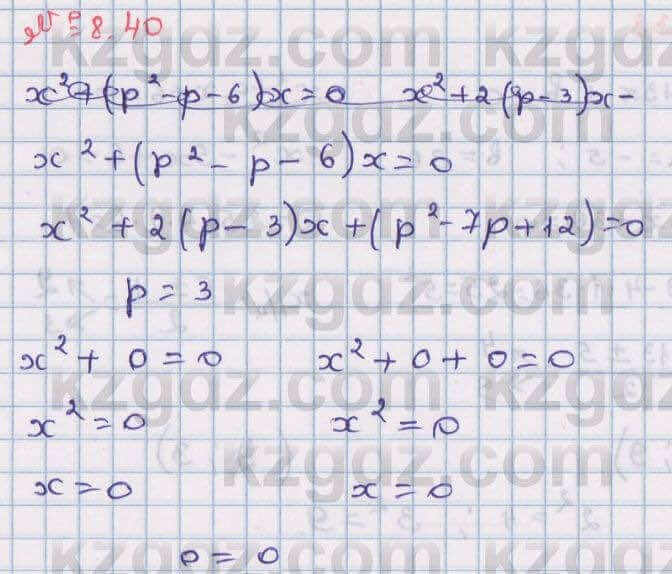 № 8.40
x² + (p² - p - 6)x = 0 x² + 2(p - 3)x -
x² + (p² - p - 6)x = 0
x² + 2(p - 3)x + (p² - 7p + 12) = 0
p = 3
x² + 0 = 0 x² + 0 + 0 = 0
x² = 0 x² = 0
x = 0 x = 0
0 = 0
kzgdz.com
kzgdz.com
kzgdz.com
kzgdz.com
kzgdz.com
kzgdz.com
kzgdz.com
kzgdz.com